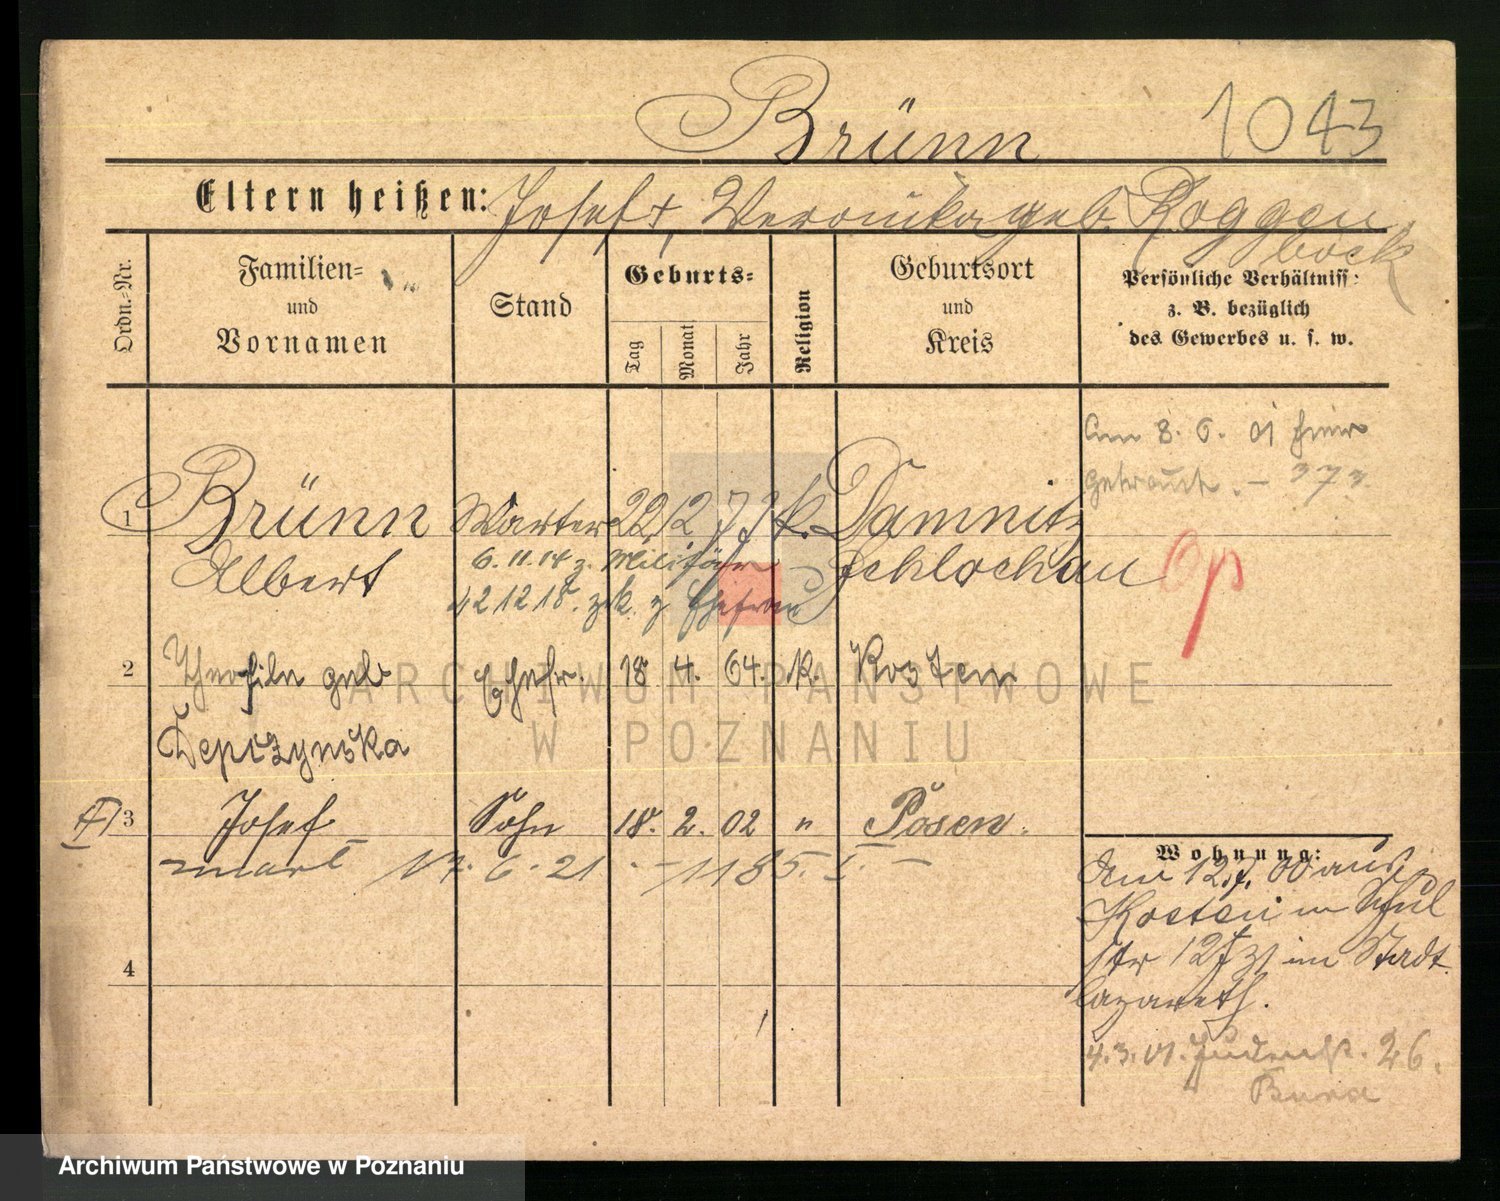 Brünn 1043
Eltern heißen: Josef +, Veronika geb. Roggen
bock
Ordn.-Nr.
Familien-
und
Vornamen
Stand
Geburts-
Tag
Monat
Jahr
Religion
Geburtsort
und
Kreis
Persönliche Verhältniss:
z. B. bezüglich
des Gewerbes u. s. w.
Am 8. 6. 01 hier
getraut. – 373
1 Brünn Warter 22 2 73 k. Damnitz
Albert 6.11.14 z. Militär Schlochau
12 18. zrk. z Ehefrau
2 geb Ehefr. 18 4. 64. k. Kosten
Depczynska
3 Josef Sohn 18. 2. 02 " Posen.
17. 6. 21 – 1185.
4
Wohnung:
Am 12.7. 00 aus
Kosten n Schul
str 12 im Stadt
lazareth.
4.3.01. 26.
ARCHIWUM PAŃSTWOWE
W POZNANIU
Archiwum Państwowe w Poznaniu